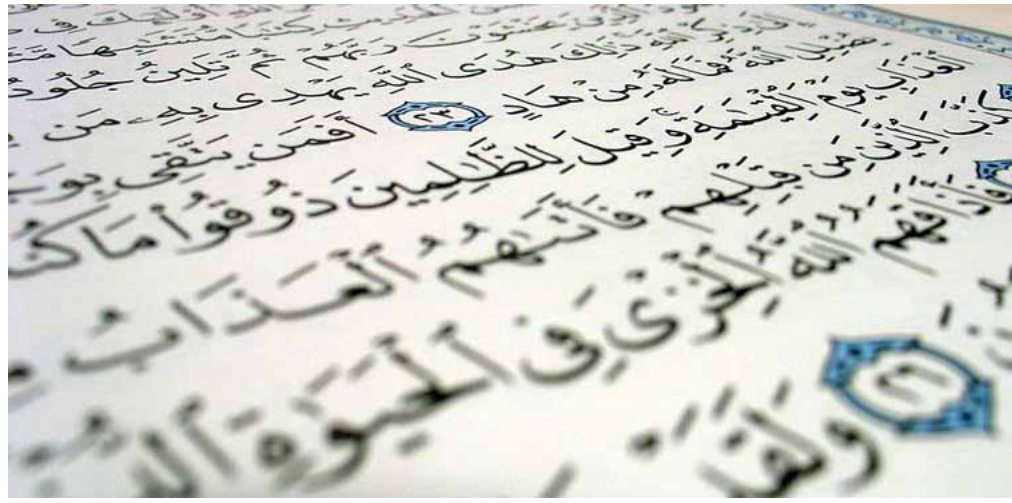 ٱللَّهِ أُو۟لَٰٓئِكَ فِى
ٱلْحَدِيثِ كِتَٰبًا مُّتَشَٰبِهًا
يَخْشَوْنَ رَبَّهُمْ ثُمَّ تَلِينُ
ٱللَّهِ ذَٰلِكَ هُدَى ٱللَّهِ يَهْدِى بِهِۦ مَن
يُضْلِلِ ٱللَّهُ فَمَا لَهُۥ مِنْ هَادٍ ٢٣ أَفَمَن يَتَّقِى
ٱلْعَذَابِ يَوْمَ ٱلْقِيَٰمَةِ وَقِيلَ لِلظَّٰلِمِينَ ذُوقُوا۟ مَا
كَذَّبَ ٱلَّذِينَ مِن قَبْلِهِمْ فَأَتَىٰهُمُ ٱلْعَذَابُ
فَأَذَاقَهُمُ ٱللَّهُ ٱلْخِزْىَ فِى ٱلْحَيَوٰةِ
٢٦ وَلَقَدْ